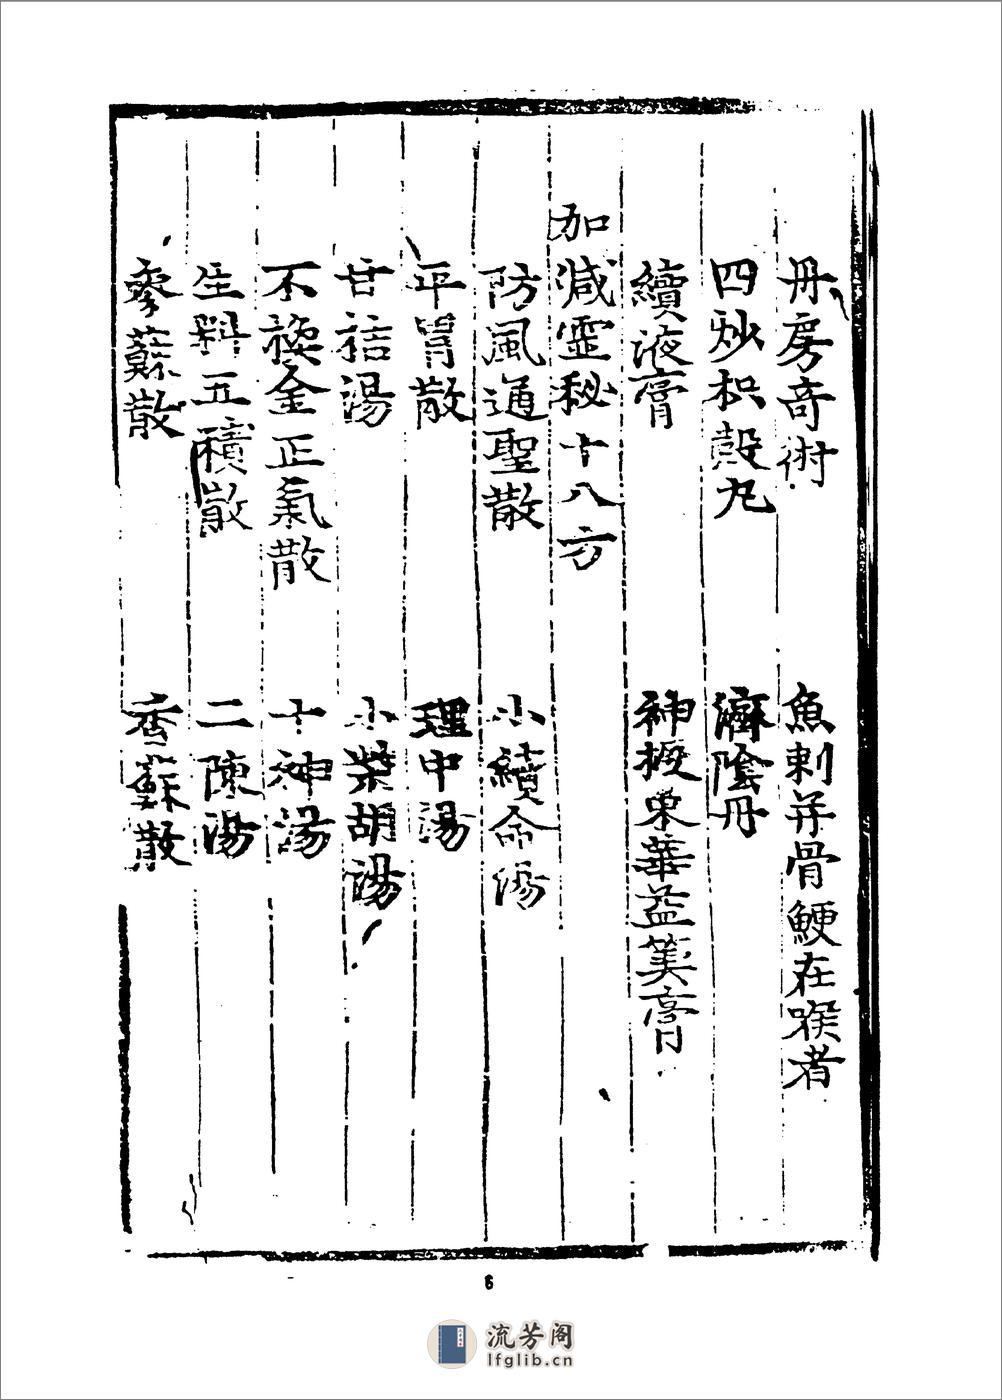 丹房奇術
魚刺并骨鯁在喉者
四炒枳殼丸
濟陰丹
續液膏
神授東華益筭膏
加減靈秘十八方
防風通聖散
小續命湯
平胃散
理中湯
甘桔湯
小柴胡湯
不換金正氣散
十神湯
生料五積散
二陳湯
參蘇散
香蘇散
6
流芳阁
lfglib.cn